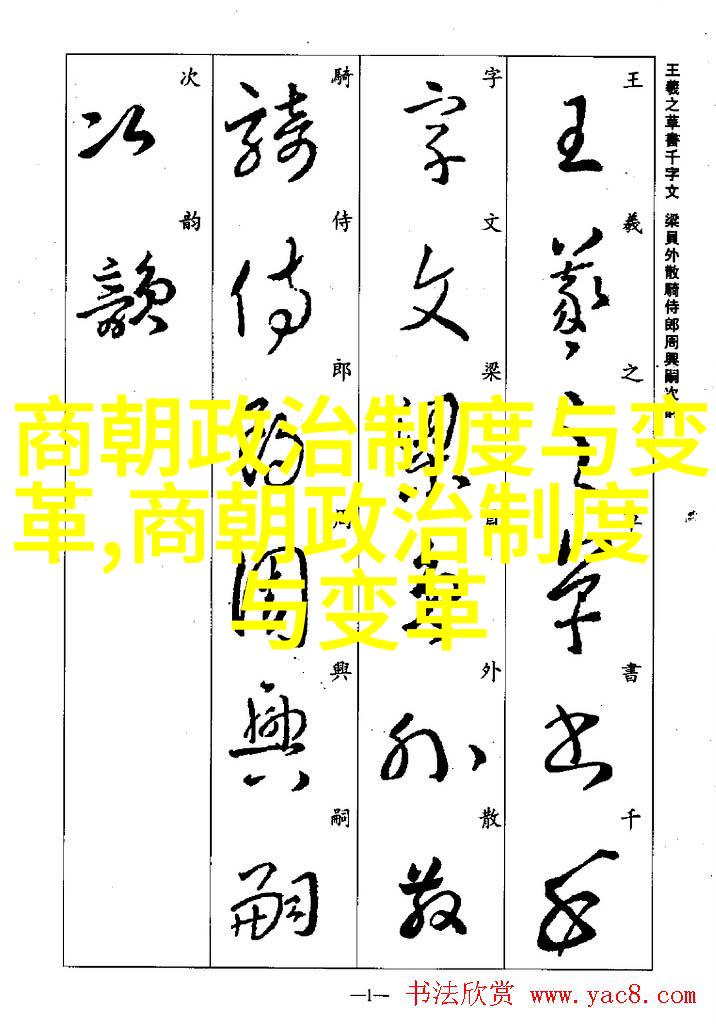 王羲之草書千字文 梁員外散騎侍郎周興嗣次
王羲之草書千
字文梁員外散
騎侍郎周興嗣
次韵
商朝政治制度与变
革,商朝政治制度
与变革
—1— 书法欣赏 www.yac8.com